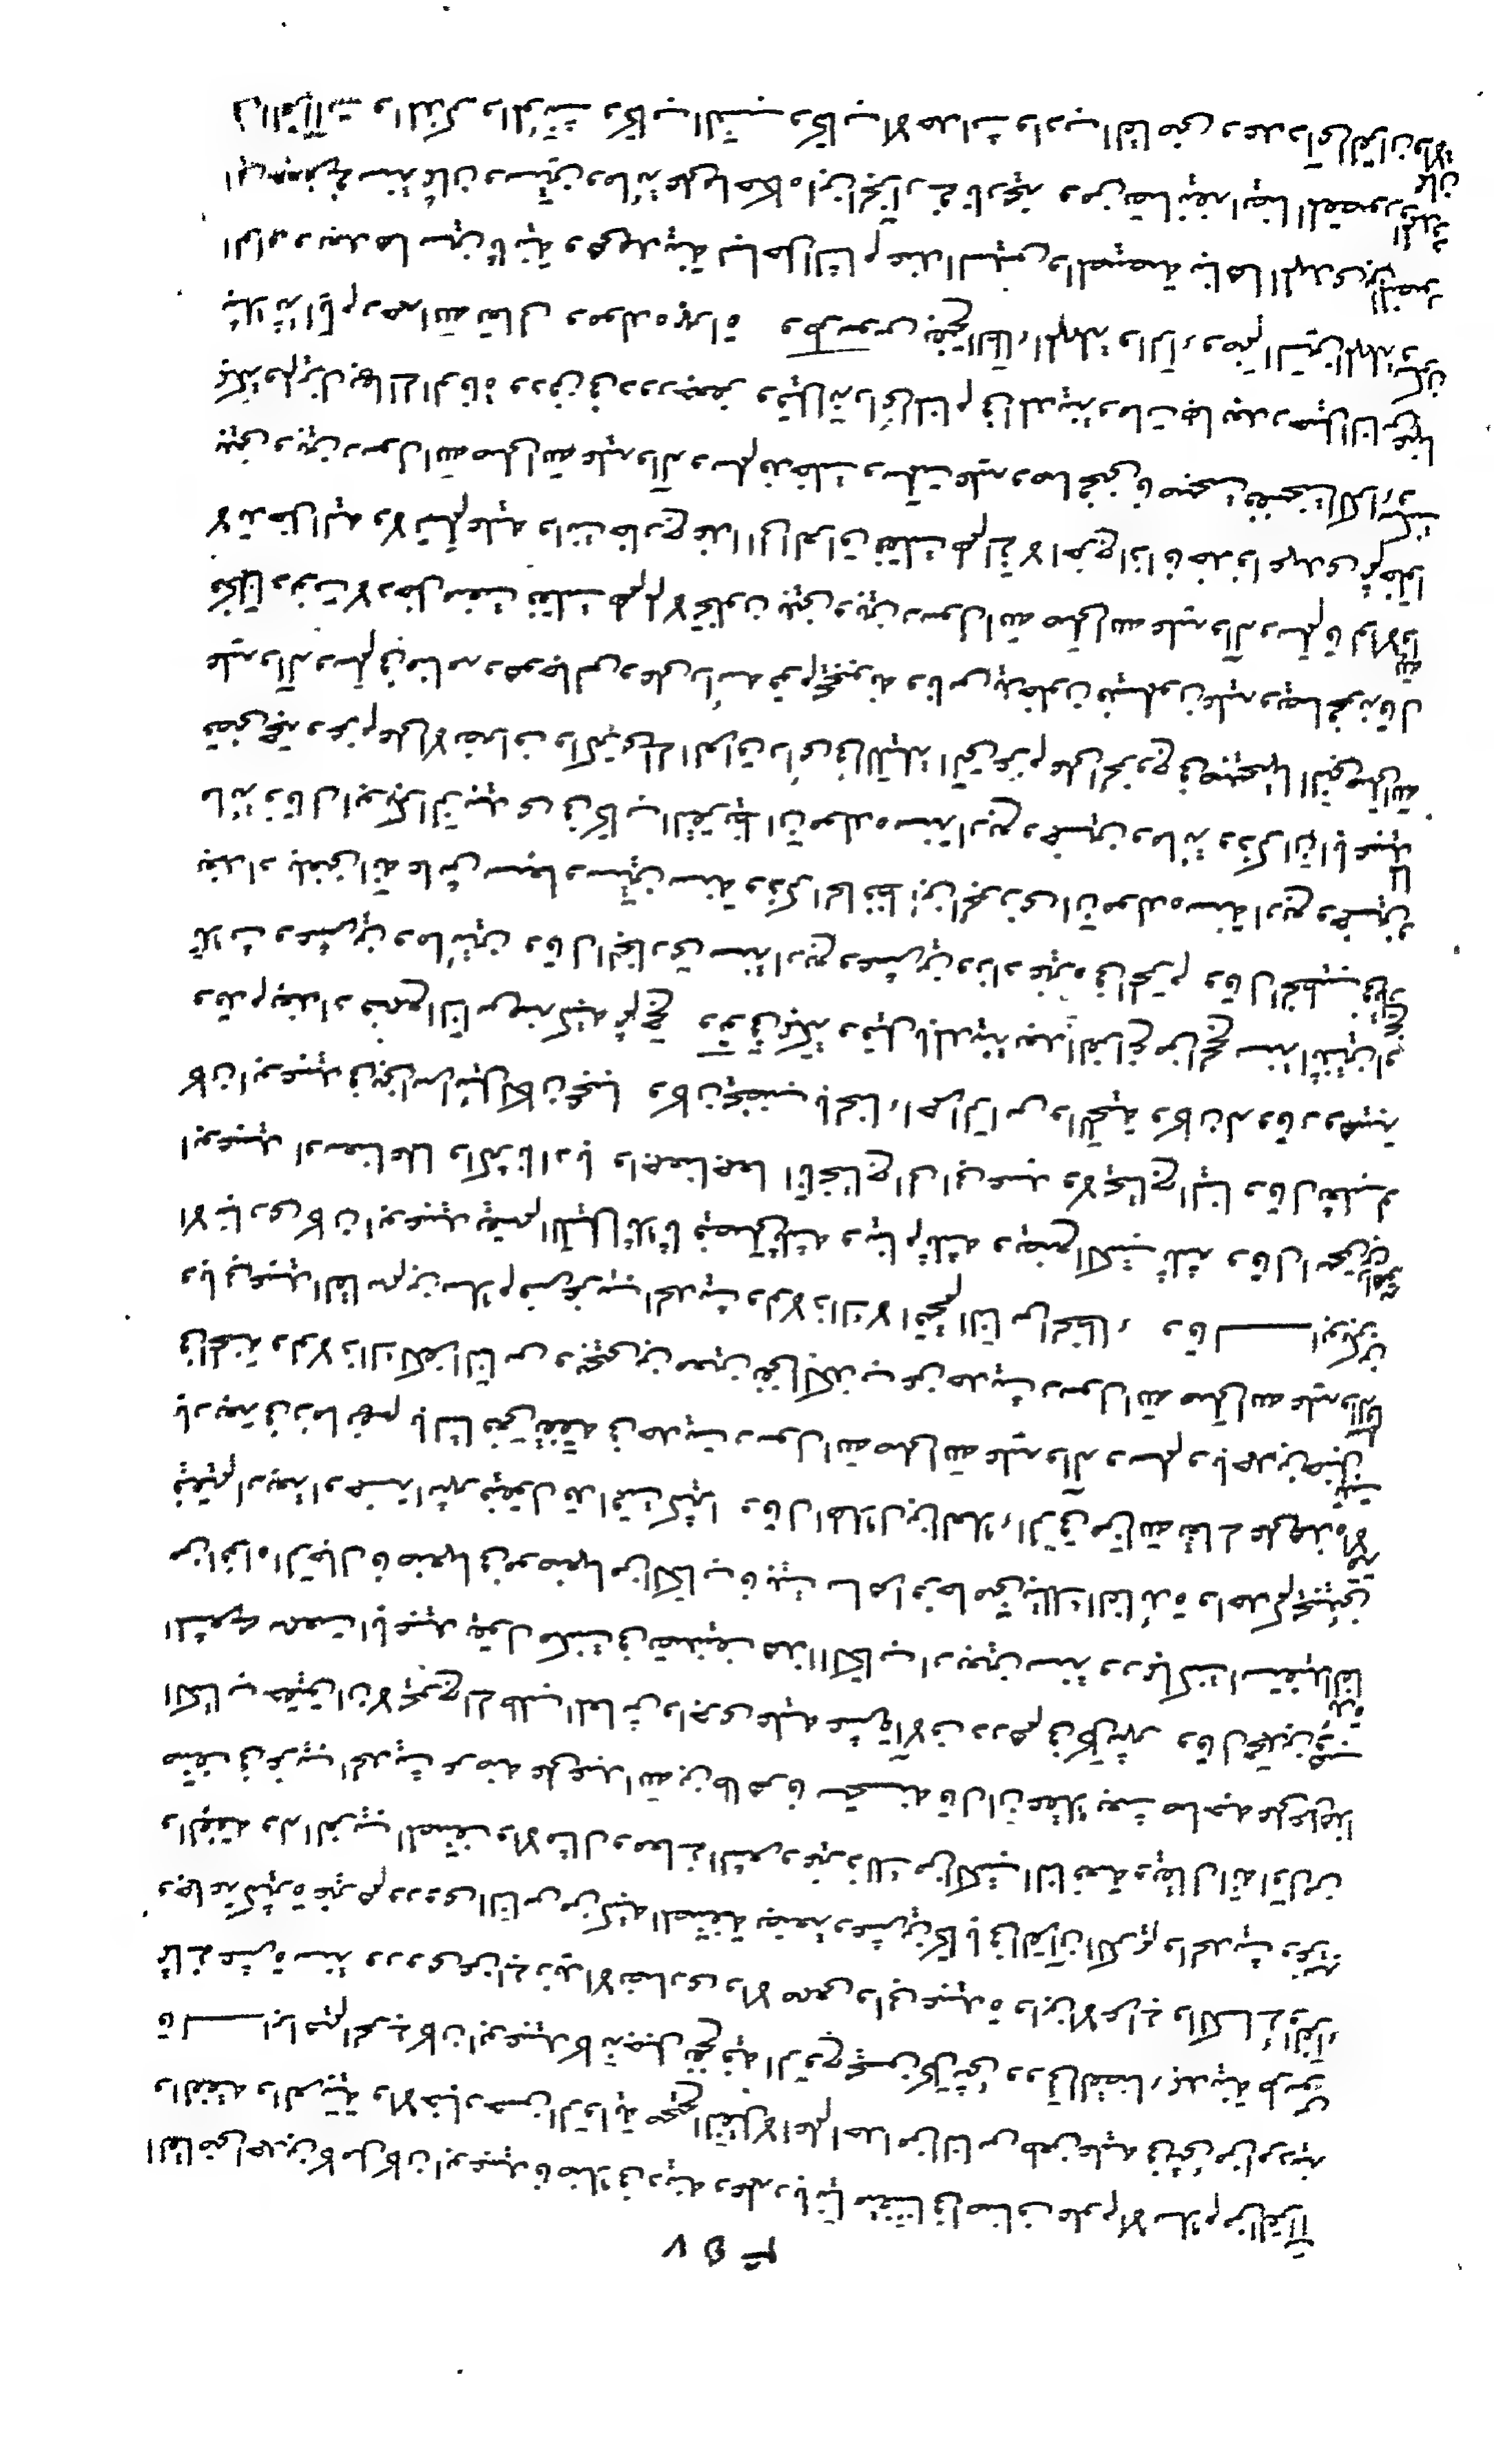 القاضي احمد بن كامل كان ابو عبيد فاضلا في دينه وعلمه ربانيا متفننا في اصناف علوم الاسلام من القرآن
والفقه والعربية والاخبار حسن الرواية صحيح النقل لا اعلم احدا من الناس طعن عليه في شيء من امر دينه
قال ابراهيم الحربي كان ابو عبيد كانه جبل نفخ فيه الروح يحسن كل شيء وولي القضاء بمدينة طرسوس
ثماني عشرة سنة وروى عن ابي زيد الانصاري والاصمعي وابي عبيدة وابن الاعرابي والكسائي والفراء
وجماعة كثيرة وغيرهم وروى الناس من كتبه المصنفة بضعة وعشرين كتابا في القرآن الكريم والحديث وغريبه
والفقه وله الغريب المصنف والامثال ومعاني الشعر وغير ذلك من الكتب النافعة ويقال انه اول من
صنف في غريب الحديث وعرضه على عبد الله بن طاهر فاستحسنه وقال ان عقلا بعث صاحبه على عمل هذا
الكتاب حقيق ان لا يحوج الى طلب المعاش واجرى عليه عشرة آلاف درهم في كل شهر وقال محمد بن وهب
المسعري سمعت ابا عبيد يقول مكثت في تصنيف هذا الكتاب اربعين سنة وربما كنت استفيد الفائدة
من افواه الرجال فاضعها في موضعها من الكتاب فابيت ساهرا فرحا مني بتلك الفائدة واحدكم يجيئني
فيقيم اربعة او خمسة اشهر فيقول قد اقمت كثيرا وقال الهلال بن العلاء الرقي من الله تعالى على هذه الامة
باربعة في زمانهم بالشافعي تفقه في حديث رسول الله صلى الله عليه وآله وسلم وباحمد بن حنبل ثبت
في المحنة ولولا ذاك لكفر الناس وبيحيى بن معين نفى الكذب عن حديث رسول الله صلى الله عليه وآله
وبابي عبيد القاسم بن سلام فسر غريب الحديث ولولا ذاك لا اقتحم الناس الخطاء وقال ابو بكر بن
الانباري كان ابو عبيد يقسم الليل اثلاثا فيصلي ثلثه وينام ثلثه ويضع الكتب ثلثه وقال اسحق بن راهويه
ابو عبيد اوسعنا علما واكثرنا ادبا واجمعنا جمعا انا نحتاج الى ابي عبيد ولا يحتاج الينا وقال ثعلب لو
كان ابو عبيد في بني اسرائيل لكان عجبا وكان يخضب بالحناء احمر الراس واللحية وكان له وقار وهيبة
وقدم بغداد فسمع الناس منه كتبه ثم حج وتوفي بمكة وقيل بالمدينة بعد الفراغ من الحج سنة اثنتين او
ثلاث وعشرين ومائتين وقال البخاري سنة اربع وعشرين وزاد غيره في المحرم وقال الخطيب في تاريخ
بغداد بلغني انه عاش سبعا وستين سنة وذكر الحافظ ابن الجوزي ان مولده سنة اربع وخمسين
مائة وقال ابو بكر الزبيدي في كتاب التقريظ ان مولده سنة اربع وخمسين ومائة وذكر ان ابا عبيد لما
قضى حجه وعزم على الانصراف واكترى الى العراق راى في الليلة التي عزم على الخروج في صبيحتها النبي صلى الله
عليه وآله وسلم في منامه وهو جالس وعلى راسه قوم يحجبونه وناس يدخلون فيسلمون عليه ويصافحونه قال
فكلما دنوت لادخل منعت فقلت لهم لم لا تخلون بيني وبين رسول الله صلى الله عليه وآله وسلم فقالوا لا والله
لا تدخل اليه ولا تسلم عليه وانت خارج غدا الى العراق فقلت لهم اني لا اخرج اذا فاخذوا عهدي ثم خلوا
بيني وبين رسول الله صلى الله عليه وآله وسلم فدخلت وسلمت عليه وصافحني فاصبحت ففسخت الكراء وسكنت
بمكة ولم يزل بها الى الوفاة ودفن في دور جعفر وقيل انه راى المنام في المدينة ومات بها بعد رحيل الناس عنها
بثلاثة ايام رحمه الله تعالى ومولده بهراة وطرسوس بفتح الطاء المهملة والراء وضم السين المهملة وسكون
الواو وبعدها سين ثانية وهي مدينة بساحل الشام عند السيس والمصيصة بناها المهدي بن المنصور
ابي جعفر في سنة ثمان وستين ومائة على ما حكاه ابن الجزار في تاريخه ومن تصانيفه ايضا المقصور والممدود في
القراآت والمذكر والمؤنث وكتاب النسب وكتاب الاحداث وادب القاضي وعدد آي القرآن والايمان